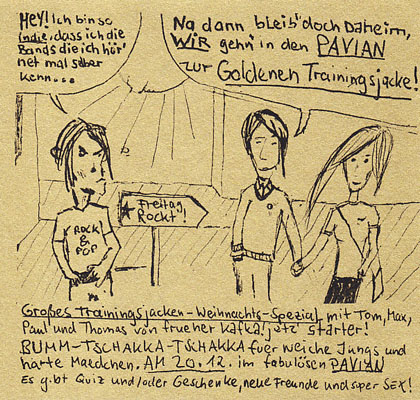 Hey! Ich bin so
Indie, dass ich die
Bands die ich hör'
net mal selber
kenn...
Na dann bleib' doch Daheim,
WIR gehn' in den PAVIAN
zur Goldenen Trainingsjacke!
Freitag
Rockt!
ROCK
&
POP
Großes Trainingsjacken-Weihnachts-Spezial mit Tom, Max,
Paul und Thomas von frueher Kafka! jetz' starter!
BUMM-TSCHAKKA-TSCHAKKA fuer weiche Jungs und
harte Maedchen. AM 20.12. im fabulösen PAVIAN
Es gibt Quiz und/oder Geschenke, neue Freunde und super SEX!